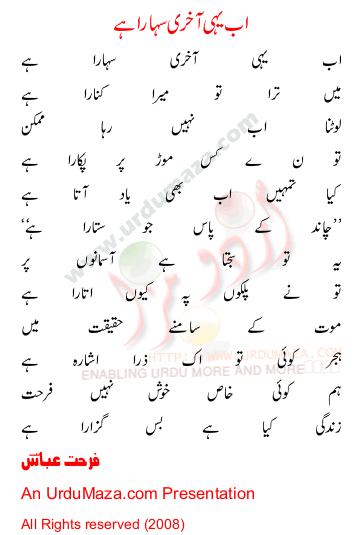 اب یہی آخری سہارا ہے
اب یہی آخری سہارا ہے
میں ترا تو میرا کنارا ہے
لوٹنا اب نہیں رہا ممکن
تو ن ے کس موڑ پر پکارا ہے
کیا تمہیں اب بھی یاد آتا ہے
’’چاند کے پاس جو ستارا ہے‘‘
یہ تو سجتا ہے آسمانوں پر
تو نے پلکوں پہ کیوں اتارا ہے
موت کے سامنے حقیقت میں
ہجر کوئی تو اک ذرا اشارہ ہے
ہم کوئی خاص خوش نہیں فرحت
زندگی کیا ہے بس گزارا ہے
فرحت عباس
An UrduMaza.com Presentation
All Rights reserved (2008)
www.urdumaza.com
اردو مزا
HTTP://WWW.URDUMAZA.COM
ENABLING URDU MORE AND MORE